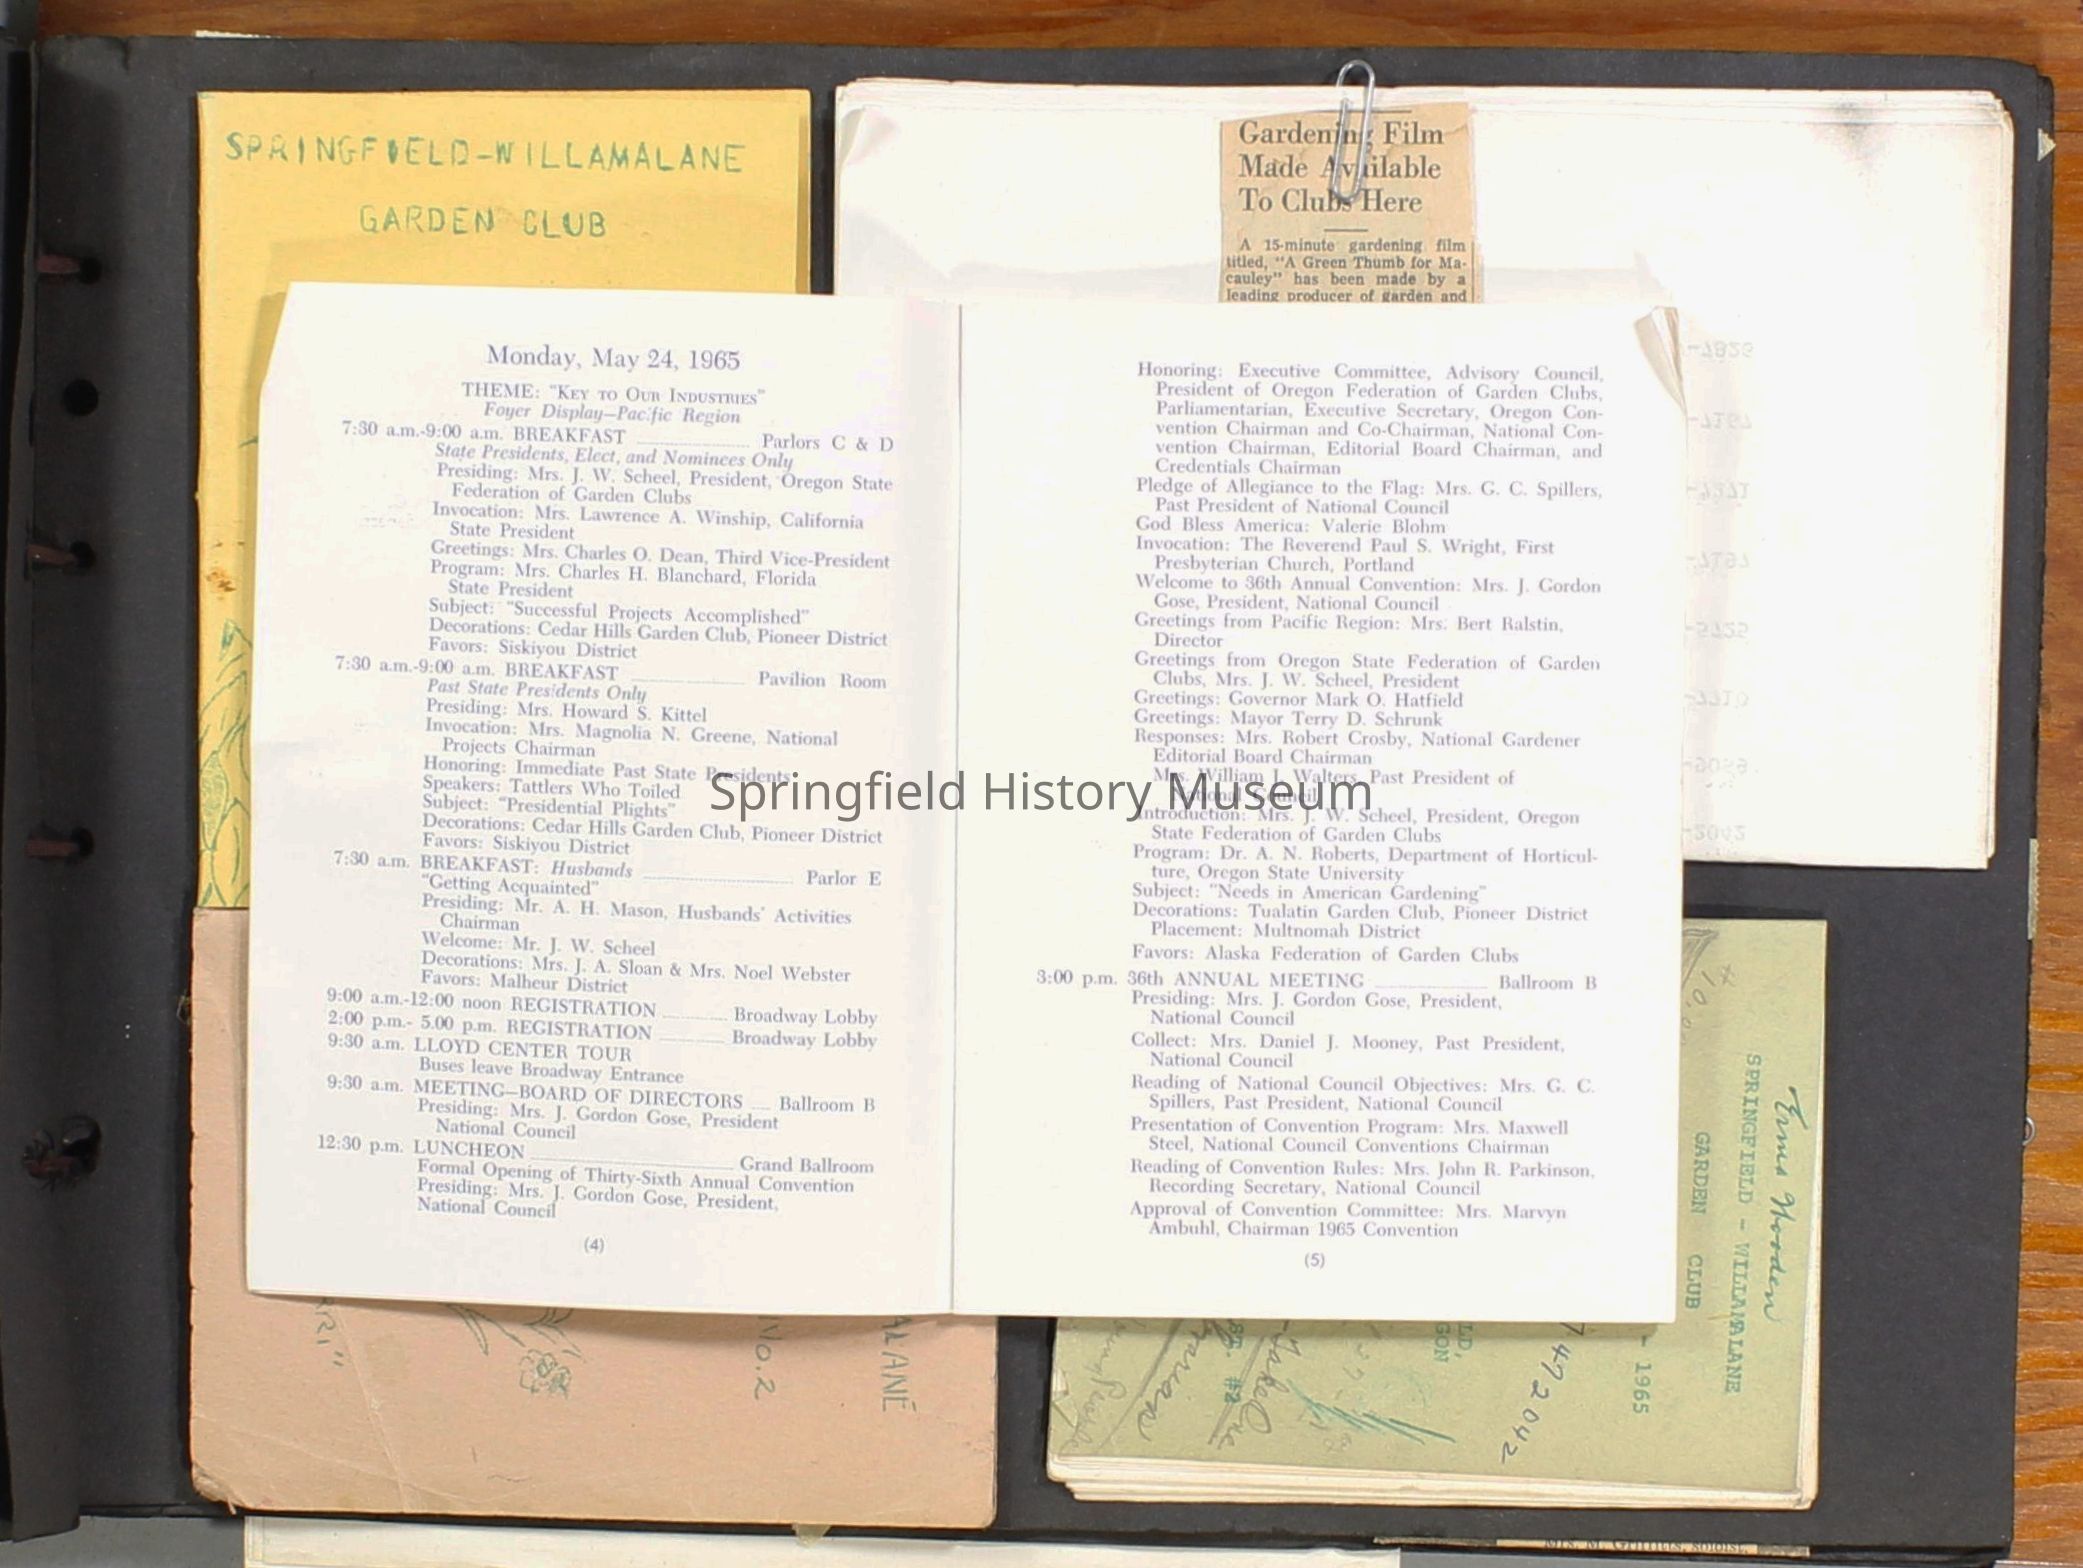 SPRINGFIELD-WILLAMALANE
GARDEN CLUB
Gardening Film
Made Available
To Clubs Here
A 15-minute gardening film
titled, "A Green Thumb for Ma-
cauley" has been made by a
leading producer of garden and
Monday, May 24, 1965
THEME: "KEY TO OUR INDUSTRIES"
Foyer Display—Pacific Region
7:30 a.m.-9:00 a.m. BREAKFAST Parlors C & D
State Presidents, Elect, and Nominees Only
Presiding: Mrs. J. W. Scheel, President, Oregon State
Federation of Garden Clubs
Invocation: Mrs. Lawrence A. Winship, California
State President
Greetings: Mrs. Charles O. Dean, Third Vice-President
Program: Mrs. Charles H. Blanchard, Florida
State President
Subject: "Successful Projects Accomplished"
Decorations: Cedar Hills Garden Club, Pioneer District
Favors: Siskiyou District
7:30 a.m.-9:00 a.m. BREAKFAST Pavilion Room
Past State Presidents Only
Presiding: Mrs. Howard S. Kittel
Invocation: Mrs. Magnolia N. Greene, National
Projects Chairman
Honoring: Immediate Past State Presidents
Speakers: Tattlers Who Toiled
Subject: "Presidential Plights"
Decorations: Cedar Hills Garden Club, Pioneer District
Favors: Siskiyou District
7:30 a.m. BREAKFAST: Husbands Parlor E
"Getting Acquainted"
Presiding: Mr. A. H. Mason, Husbands' Activities
Chairman
Welcome: Mr. J. W. Scheel
Decorations: Mrs. J. A. Sloan & Mrs. Noel Webster
Favors: Malheur District
9:00 a.m.-12:00 noon REGISTRATION Broadway Lobby
2:00 p.m.- 5.00 p.m. REGISTRATION Broadway Lobby
9:30 a.m. LLOYD CENTER TOUR
Buses leave Broadway Entrance
9:30 a.m. MEETING—BOARD OF DIRECTORS Ballroom B
Presiding: Mrs. J. Gordon Gose, President
National Council
12:30 p.m. LUNCHEON Grand Ballroom
Formal Opening of Thirty-Sixth Annual Convention
Presiding: Mrs. J. Gordon Gose, President,
National Council
(4)
Honoring: Executive Committee, Advisory Council,
President of Oregon Federation of Garden Clubs,
Parliamentarian, Executive Secretary, Oregon Con-
vention Chairman and Co-Chairman, National Con-
vention Chairman, Editorial Board Chairman, and
Credentials Chairman
Pledge of Allegiance to the Flag: Mrs. G. C. Spillers,
Past President of National Council
God Bless America: Valerie Blohm
Invocation: The Reverend Paul S. Wright, First
Presbyterian Church, Portland
Welcome to 36th Annual Convention: Mrs. J. Gordon
Gose, President, National Council
Greetings from Pacific Region: Mrs. Bert Ralstin,
Director
Greetings from Oregon State Federation of Garden
Clubs, Mrs. J. W. Scheel, President
Greetings: Governor Mark O. Hatfield
Greetings: Mayor Terry D. Schrunk
Responses: Mrs. Robert Crosby, National Gardener
Editorial Board Chairman
Mrs. William J. Walters, Past President of
National Council
Introduction: Mrs. J. W. Scheel, President, Oregon
State Federation of Garden Clubs
Program: Dr. A. N. Roberts, Department of Horticul-
ture, Oregon State University
Subject: "Needs in American Gardening"
Decorations: Tualatin Garden Club, Pioneer District
Placement: Multnomah District
Favors: Alaska Federation of Garden Clubs
3:00 p.m. 36th ANNUAL MEETING Ballroom B
Presiding: Mrs. J. Gordon Gose, President,
National Council
Collect: Mrs. Daniel J. Mooney, Past President,
National Council
Reading of National Council Objectives: Mrs. G. C.
Spillers, Past President, National Council
Presentation of Convention Program: Mrs. Maxwell
Steel, National Council Conventions Chairman
Reading of Convention Rules: Mrs. John R. Parkinson,
Recording Secretary, National Council
Approval of Convention Committee: Mrs. Marvyn
Ambuhl, Chairman 1965 Convention
(5)
Springfield History Museum
SPRINGFIELD - WILLAMALANE
GARDEN CLUB
- 1965
7472042
#2
No.2
ALANE
Mrs. M. Griffitts, soloist,